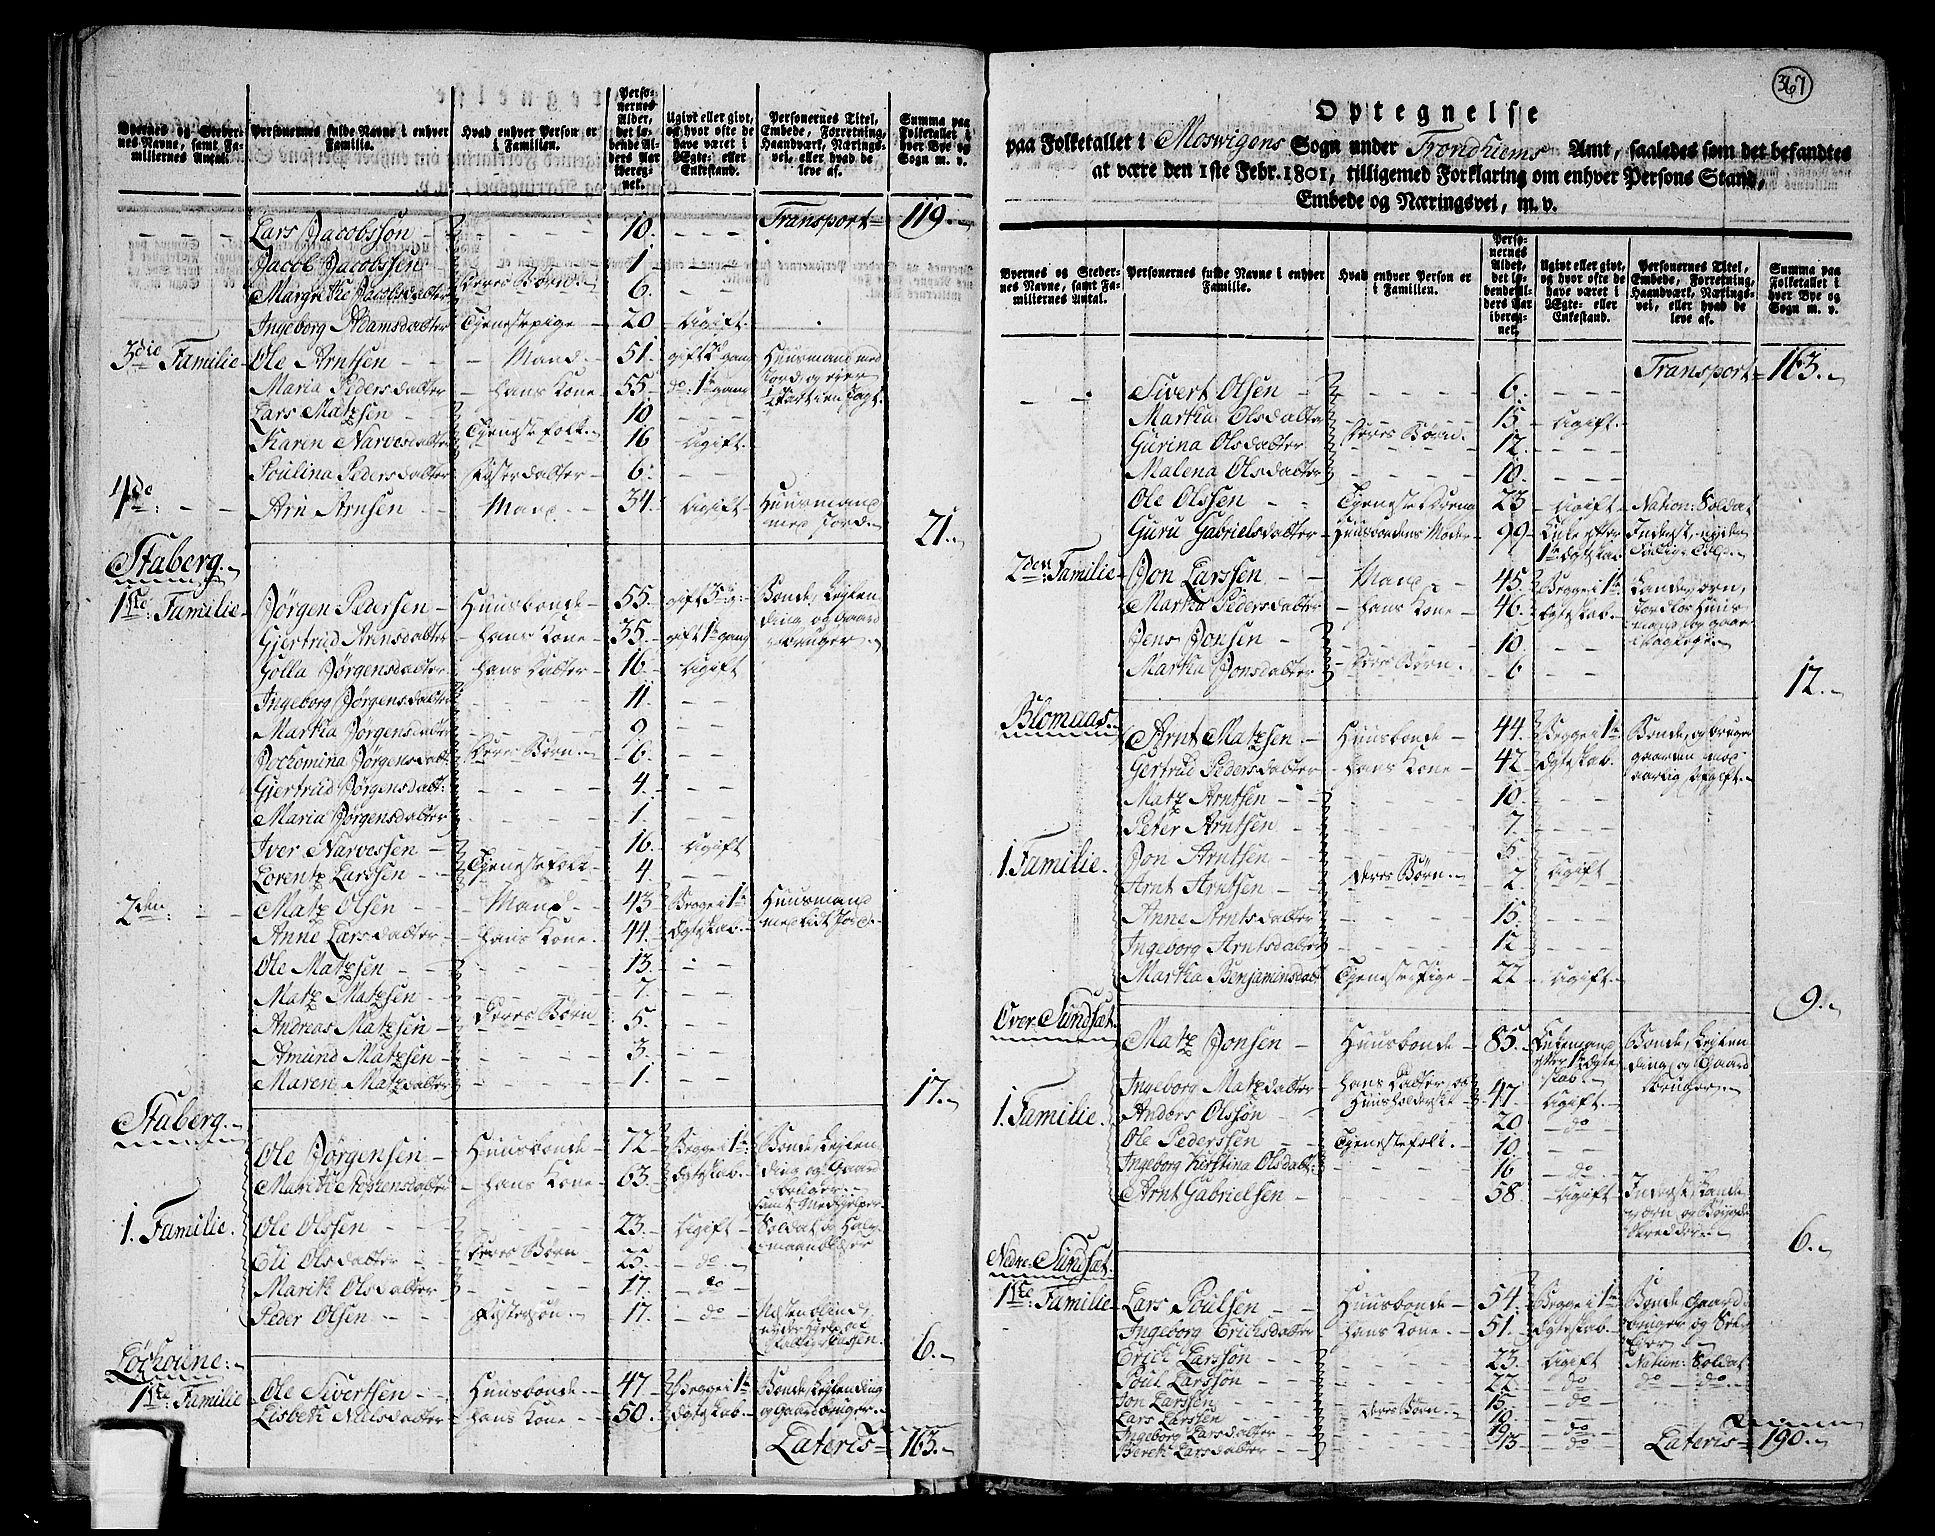 Byernes og Stedernes Navne, samt Familiernes Antal. | Personernes fulde Navne i enhver Familie. | Hvad enhver Person er i Familien. | Personernes Alder, det løbende Alders Aar iberegnet. | Ugivt eller givt, og hvor ofte de have været i Ægte- eller Enkestand. | Personernes Titel, Embede, Forretning, Haandværk, Næringsvei, eller hvad de leve af. | Summa paa Folketallet i hver Bye og Sogn m. v.
Lars Jacobssøn 10. Transport 119.
Jacob Jacobssen 1
Margrethe Jacobsdatter Deres Børn 6.
Ingeborg Adamsdatter Tjenestepige 20 Ugift
3die Familie Ole Arntsen Mand 51. gift 2 gang Huusmand med
Maria Pedersdatter Hans Kone 55. do: 1te gang Jord, og eier
Lars Matzsen 10
Karen Narvesdatter Tjenestefolk 16 Ugift
Poulina Pedersdatter Søsterdatter 6.
4de: Arn Arnsen Mand 34. Ugift Huusmand
med Jord. 21.
Staberg.
1ste: Familie Jørgen Pedersen Huusbonde 55. Bonde, Leylen
Gjertrud Arensdatter Hans Kone 35. gift 1te gang ding og Gaard
Golla Jørgensdatter Hans Datter 16. Ugift bruger
Ingeborg Jørgensdatter 11.
Martha Jørgensdatter 9
Jochomina Jørgensdatt: Deres Børn 6.
Gjertrud Jørgensdatt: 4.
Maria Jørgensdatter 1.
Iver Narvessen 16. Ugift
Lorentz Larssen Tjenestefolk 4
2den: Matz Olsen Mand 43 Begge i 1te Huusmand
Anne Larsdatter Hans Kone. 44. Ægteskab. med lidt Jord.
Ole Matzsen 13.
Matz Matzsen 7.
Andreas Matzsen Deres Børn 5.
Amund Matzsen 3.
Maren Matzdatter 1. 17.
Staberg.
Ole Jørgensen Huusbonde 72 Begge i 1te Bonde, Leylen
Hans Kone 63. Ægteskab. ding og Gaard
bruger
1. Familie. Ole Olssen 23. Ugift Soldat
Eli Olsdatter Deres Børn 25. do
Marith Olsdatter 17. do
Peder Olsen Søstersøn. 17. do
6.
1ste Familie Ole Sivertsen Huusbonde 47 Begge i 1te Bonde, Leylending
Lisbeth Nielsdatter Hans Kone 50. Ægteskab. og Gaardbruger.
Lateris 163.
367
Optegnelse
paa Folketallet i Moswigens Sogn under Trondhiems Amt, saaledes som det befandtes
at være den 1ste Febr. 1801, tilligemed Forklaring om enhver Persons Stand,
Embede og Næringsvei, m. v.
Byernes og Stedernes Navne, samt Familiernes Antal. | Personernes fulde Navne i enhver Familie. | Hvad enhver Person er i Familien. | Personernes Alder, det løbende Alders Aar iberegnet. | Ugivt eller givt, og hvor ofte de have været i Ægte- eller Enkestand. | Personernes Titel, Embede, Forretning, Haandværk, Næringsvei, eller hvad de leve af. | Summa paa Folketallet i hver Bye og Sogn m. v.
Transport 163.
Sivert Olsen 6.
Martha Olsdatter 15. Ugift
Gurina Olsdatter Deres Børn. 12.
Malena Olsdatter 10.
Ole Olssen Tjenestedreng 23 Ugift Nation: Soldat
Guru Gabrielsdatter Huusbondens Moder 99 Enke efter
1te Ægteskab
2den: Familie Jon Larssen Mand 45. Begge i 1te
Martha Pedersdatter Hans Kone 46. Ægteskab.
Jens Jonsen 10.
Martha Jonsdatter Deres Børn. 6
12.
Blomaas.
Arnt Matzsen Huusbonde 44. Begge i 1te Bonde, og bruger
Gertrud Pedersdatter Hans Kone 42 Ægteskab. gaarden mod
Matz Arntsen 10. aarlig Afgift.
Peter Arntsen 7
1. Familie. Jon Arntsen 5.
Arnt Arntsen Deres Børn. 2 Ugift
Anne Arntsdatter 15.
Ingeborg Arntsdatter 12
Martha Benjaminsdatt Tjenestepige 22 Ugift.
9.
Over Sundsæt.
Matz Jonsen Huusbonde 85. Enkemand Bonde, Leylen
efter 1te Ægte ding og Gaard
skab. bruger
Ingeborg Matzdatter Hans Datter, og Huusholderske 47 Ugift.
1. Familie. Anders Olssøn 20 do
Ole Pederssen Tjenestefolk. 10.
Ingeborg Kirstina Olsdatt: 16 do
Arnt Gabrielsen 58. Ugift
6.
Nedre Sundsæt.
1ste: Familie Lars Poulsen Huusbonde 54. Begge i 1te Bonde Gaard
Ingeborg Erichsdatter Hans Kone 51. Ægteskab. bruger og
Erich Larssøn 23. Ugift Nation: Soldat
Poul Larssøn 22. do do do
Jon Larssen 15. do
Lars Larssen Deres Børn. 10.
Ingeborg Larsdatter 19 do
Bereth Larsdatter 13 do Lateris 190.